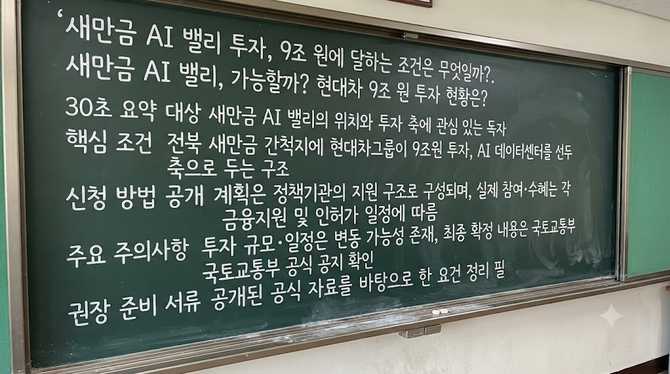 ‘새만금 AI 밸리 투자, 9조 원에 달하는 조건은 무엇일까?.
새만금 AI 밸리, 가능할까? 현대차 9조 원 투자 현황은?
30초 요약 대상 새만금 AI 밸리의 위치와 투자 축에 관심 있는 독자
핵심 조건 전북 새만금 간척지에 현대차그룹이 9조원 투자, AI 데이터센터를 선두
축으로 두는 구조
신청 방법 공개 계획은 정책기관의 지원 구조로 구성되며, 실제 참여·수혜는 각
금융지원 및 인허가 일정에 따름
주요 주의사항 투자 규모·일정은 변동 가능성 존재, 최종 확정 내용은 국토교통부
국토교통부 공식 공지 확인
권장 준비 서류 공개된 공식 자료를 바탕으로 한 요건 정리 필